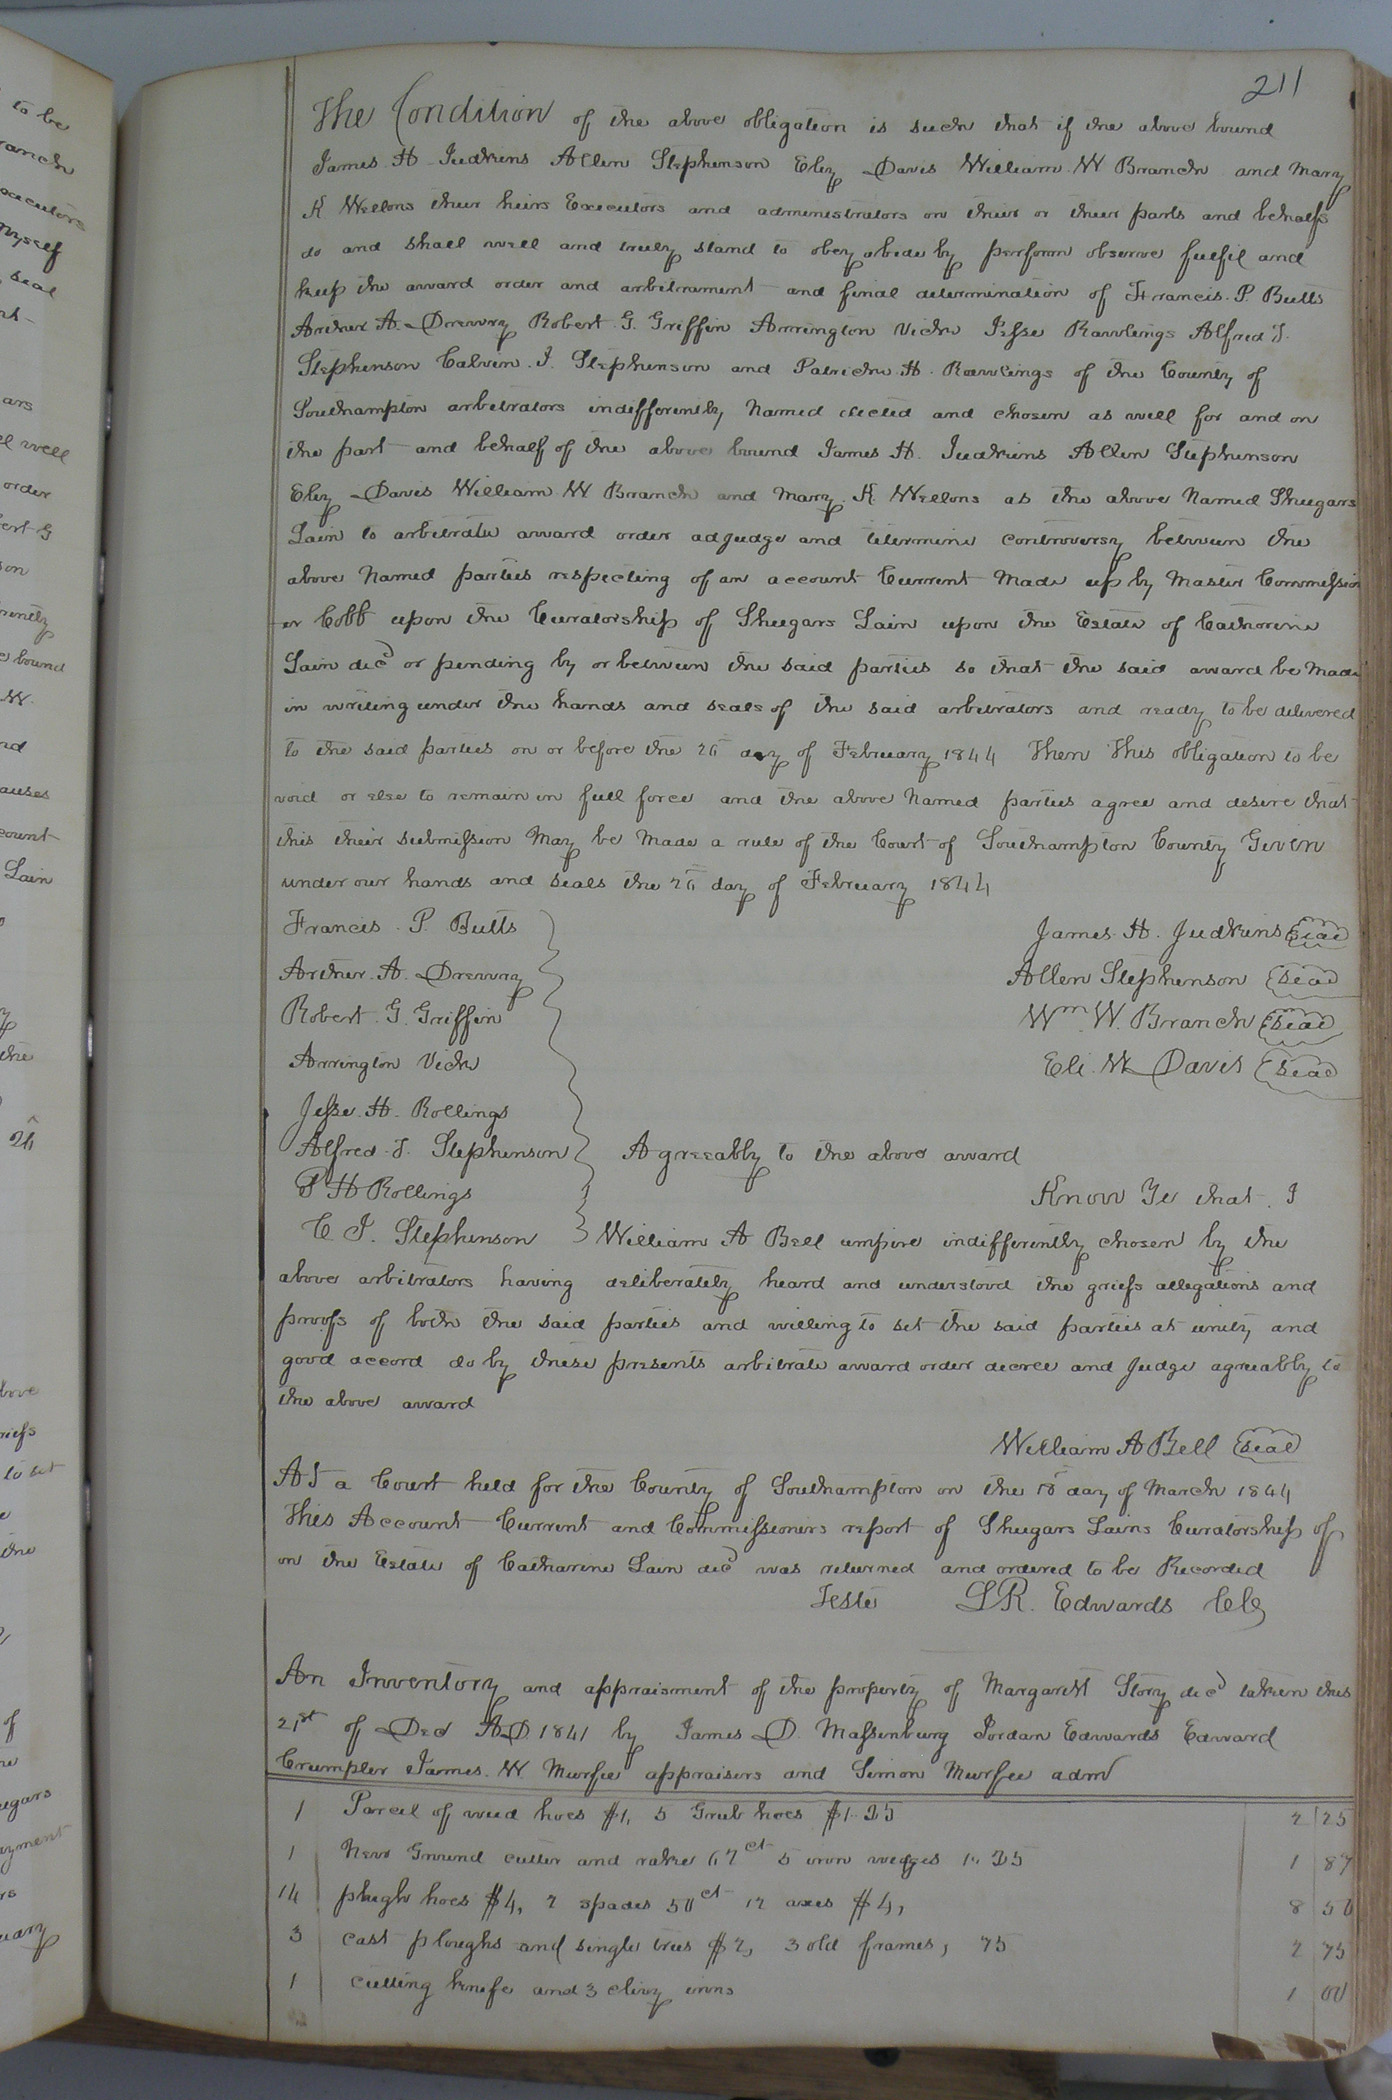 211
The Condition of the above obligation is such that if the above bound
James H Judkins Allen Stephenson Eley Davis William W Branch and Mary
K Wellons their heirs Executors and administrators on their or their parts and behalfs
do and shall well and truly stand to obey abide by perform observe fulfil and
keep the award order and arbitrament and final determination of Francis. P. Butts
Archer A. Drewry Robert. G. Griffin Arrington Vick Jesse Rawlings Alfred J.
Stephenson Calvin. J. Stephenson and Patrick. H. Rawlings of the County of
Southampton arbitrators indifferently Named elected and chosen as well for and on
the part and behalf of the above bound James H. Judkins Allen Stephenson
Eley Davis William W Branch and Mary. K. Wellons as the above Named Shugars
Lain to arbitrate award order adjudge and determine controversy between the
above Named parties respecting of an account Current Made up by Master Commission
er Cobb upon the Curatorship of Shugars Lain upon the Estate of Cathorine
Lain decd or pending by or between the said parties so that the said award be Made
in writing under the hands and seals of the said arbitrators and ready to be delivered
to the said parties on or before the day of February 1844 Then This obligation to be
void or else to remain in full force and the above Named parties agree and desire that
this their submission May be Made a rule of the Court of Southampton County Given
under our hands and seals the day of February 1844
Francis. P. Butts James. H. Judkins seal
Archer. A. Drewry Allen Stephenson seal
Robert. G. Griffin Wm W. Branch seal
Arrington Vick Eli. W Davis seal
Jesse. H. Rollings
Alfred. J. Stephenson Agreeably to the above award
P H Rollings Know Ye that. I
C J. Stephenson William A Bell umpire indifferently chosen by the
above arbitrators having deliberately heard and understood the griefs allegations and
proofs of both the said parties and willing to set the said parties at unity and
good accord do by these presents arbitrate award order decree and Judge agreeably to
the above award
William A Bell seal
At a Court held for the County of Southampton on the 18 day of March 1844
This Account Current and Commissioners report of Shugars Lains Curatorship of
on the Estate of Catharine Lain decd was returned and ordered to be Recorded
Teste L R. Edwards CC
An Inventory and appraisment of the property of Margarett Story decd taken this
21st of Dec A.D. 1841 by James D. Massenburg Jordan Edwards Edward
Crumpler James. W. Murfee appraisers and Simon Murfee admr
1 Parcel of weed hoes $1, 5 Grub hoes $1.25 2 25
1 New Ground cutter and rake 62ct 5 iron wedges 1.25 1 87
14 plugh hoes $4, 2 spades 50ct 12 axes $4, 8 50
3 cast ploughs and single trees $2, 3 old frames, 75 2 75
1 cutting knife and 3 clivy irons 1 00